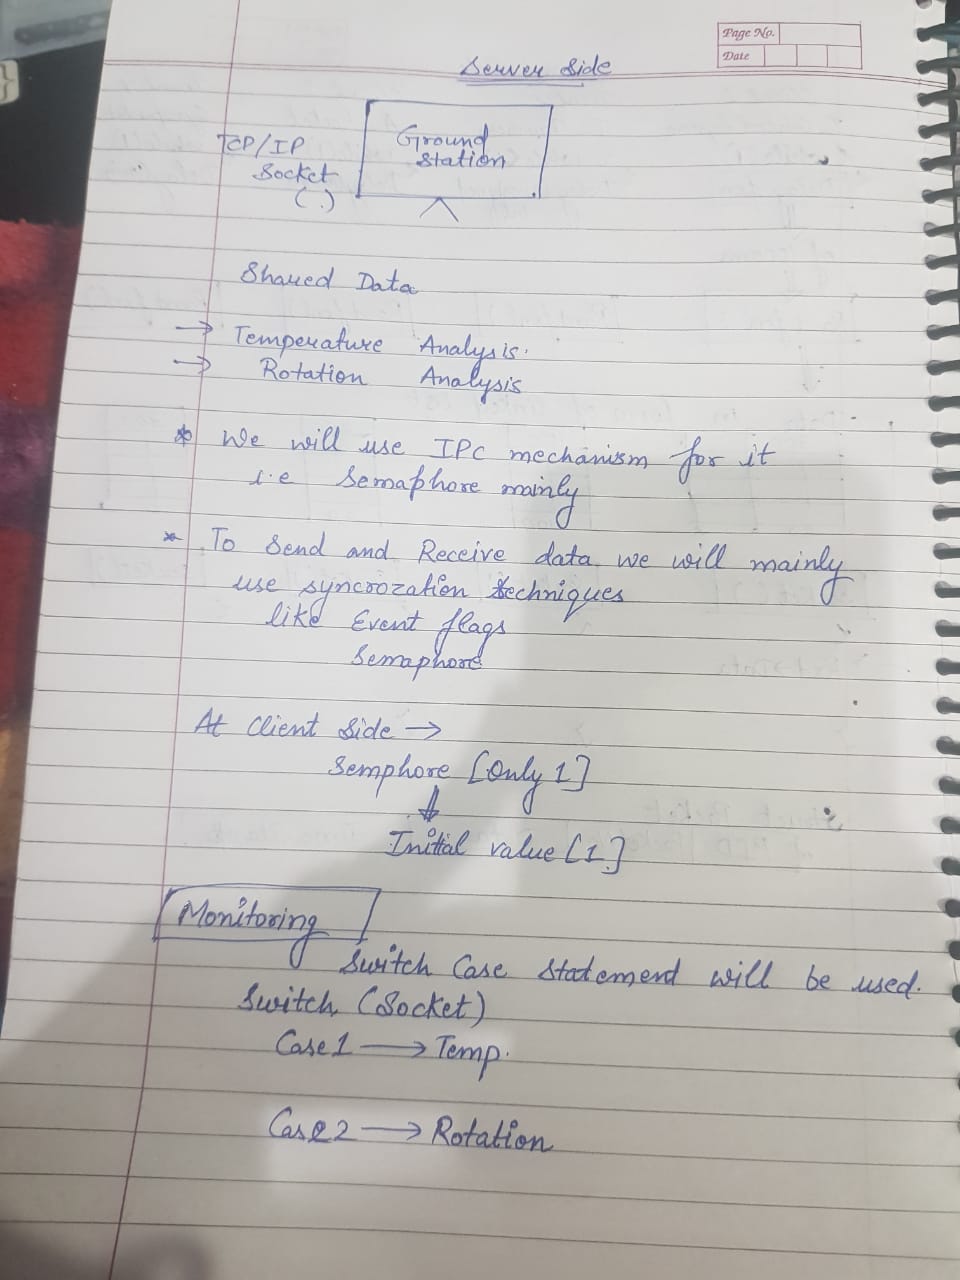 Page No.
Date
Server Side
TCP/IP
Socket
(.)
Ground
Station
Shared Data
→ Temperature Analysis.
→ Rotation Analysis
* We will use IPC mechanism for it
i.e Semaphore mainly
* To Send and Receive data we will mainly
use syncrozation techniques
like Event flags
Semaphore
At Client Side →
Semphore [Only 1]
↓
Initial value [1]
Monitoring
Switch Case Statement will be used.
Switch (Socket)
Case 1 → Temp.
Case 2 → Rotation